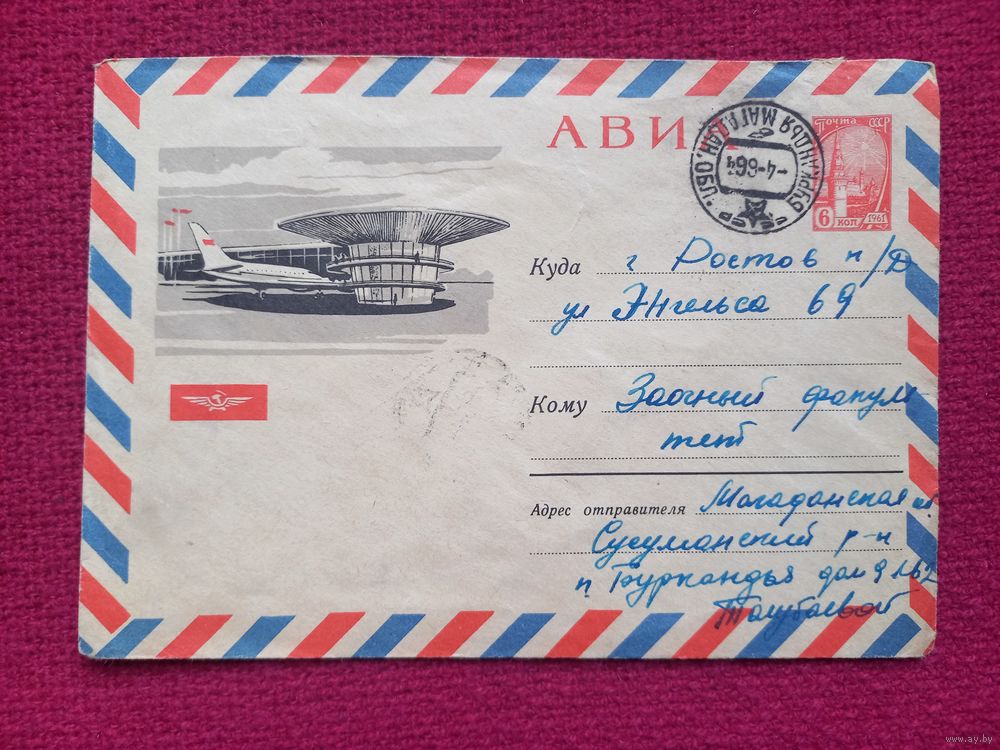 АВИА
Почта СССР
6 коп 1961
БУРКАНДЬЯ МАГАДАН. ОБЛ.
Куда г Ростов н/Д
ул Энгельса 69
Кому Заочный факуль
тет
Адрес отправителя Магаданская
Сусуманский р-н
п Буркандья дом 9
www.ay.by